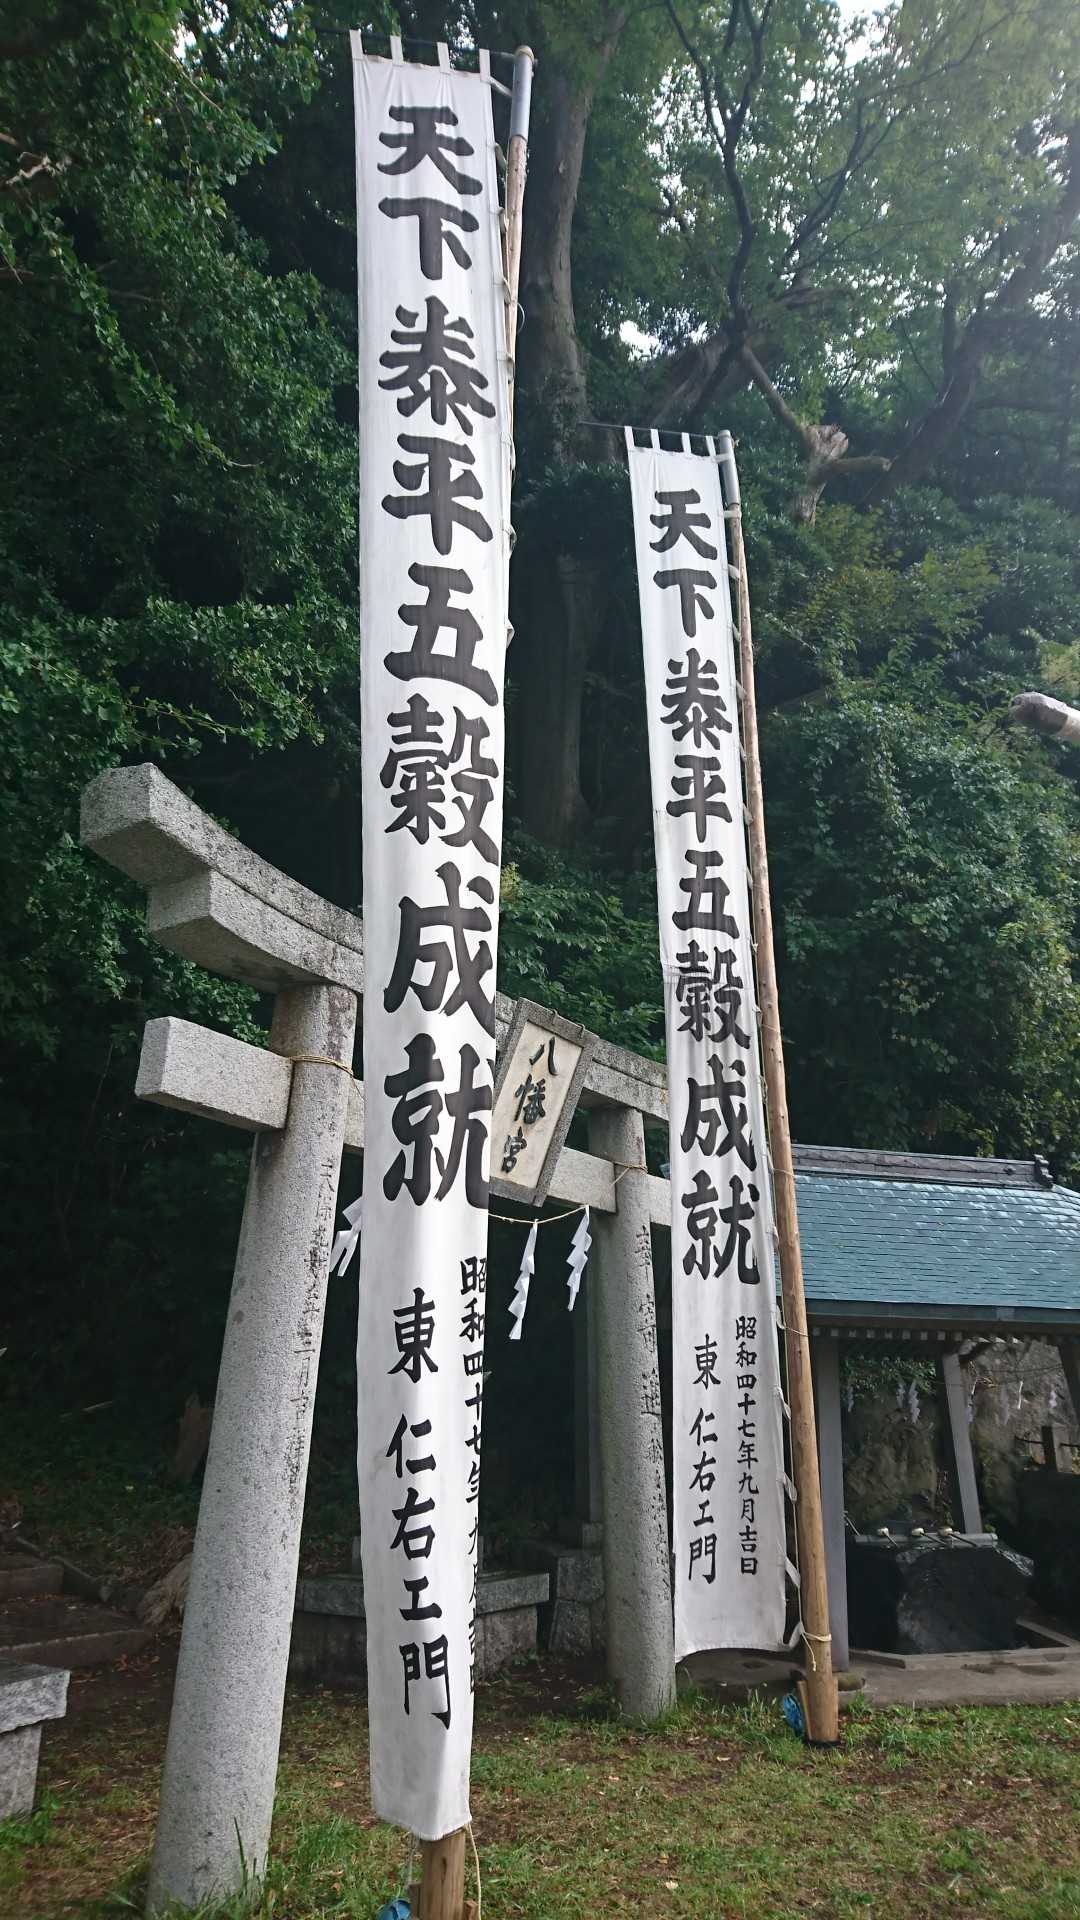 天下泰平五穀成就
昭和四十七年九月吉日
東 仁右エ門
八幡宮
天下泰平五穀成就
昭和四十七年九月吉日
東 仁右エ門